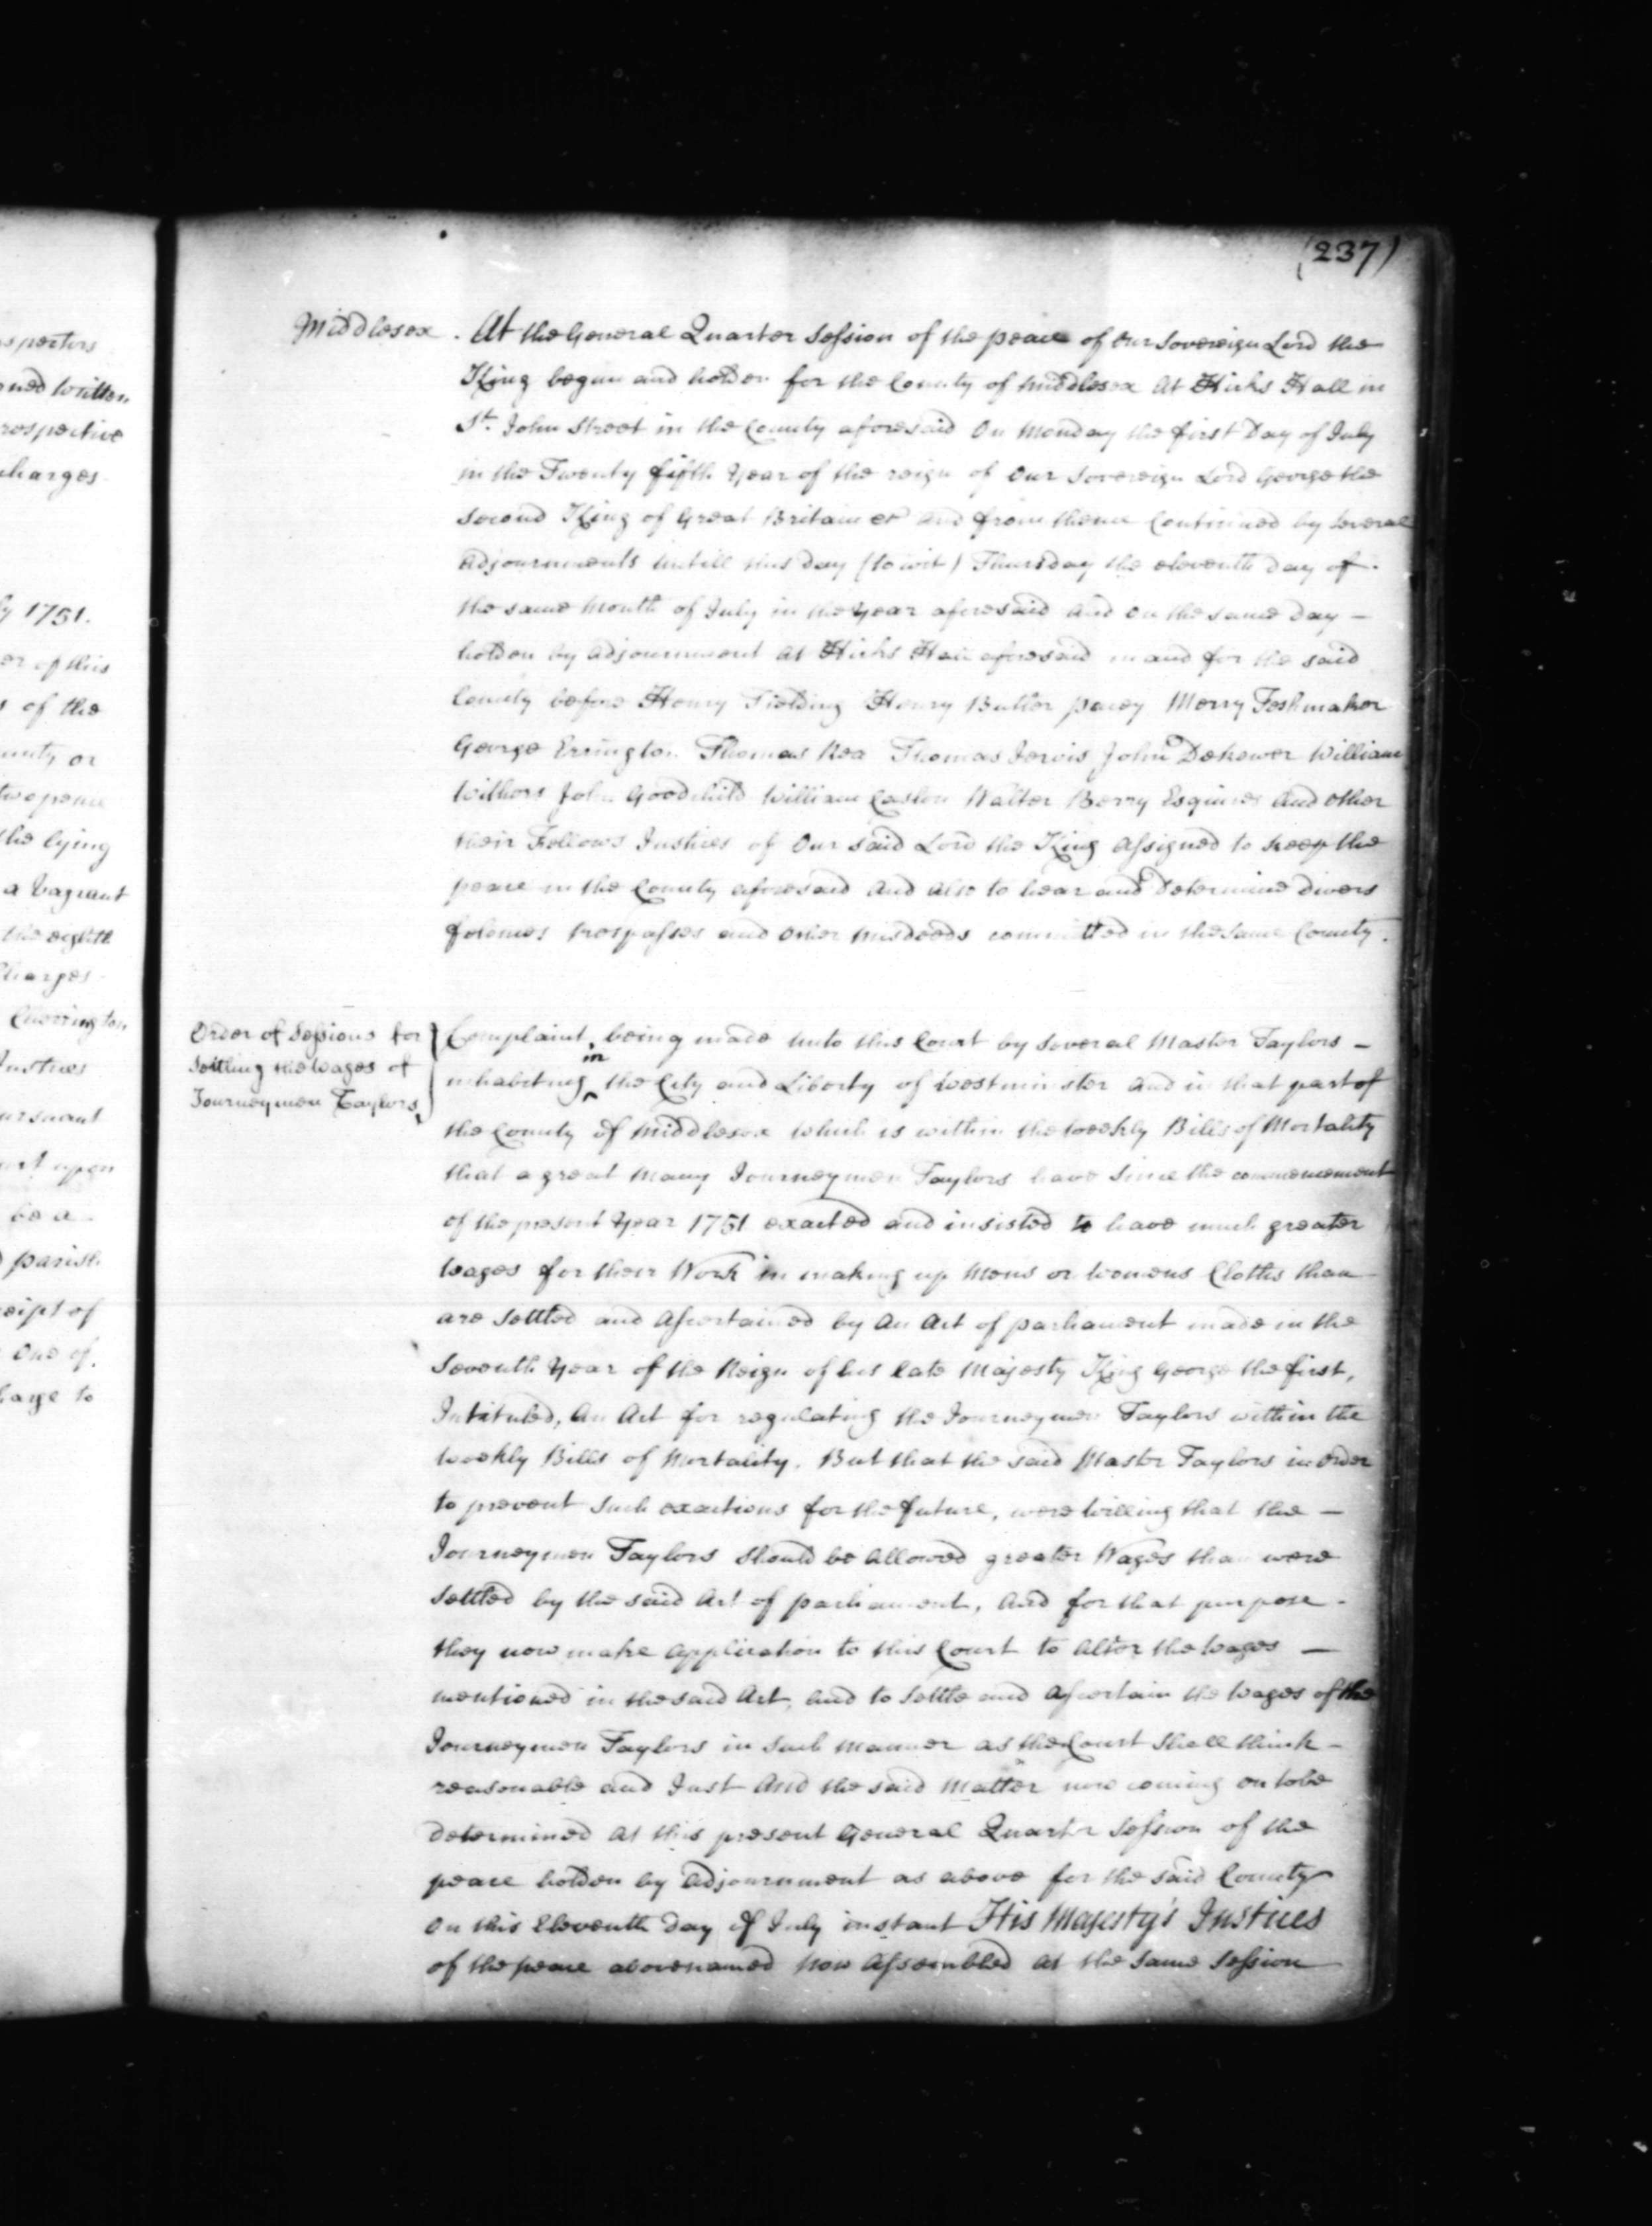 (237)
Middlesex. At the General Quarter Session of the peace of Our Sovereign Lord the
King begun and holden for the County of Middlesex At Hicks Hall in
St. John Street in the County aforesaid On Monday the first Day of July
in the Twenty fifth Year of the reign of Our Sovereign Lord George the
Second King of Great Britain &c And from thence Continued by Several
Adjournments Untill this Day (to wit) Thursday the eleventh Day of
the same Month of July in the Year aforesaid And on the same Day —
holden by Adjournment At Hicks Hall aforesaid in and for the said
County before Henry Fielding Henry Butler pacey Merry Teshmaker
George Errington Thomas Rea Thomas Jervis John Dekewer William
Withers John Goodchild William Caslon Walter Berry Esquires And other
their Fellows Justices of Our said Lord the King Assigned to keep the
peace in the County aforesaid And Also to hear and Determine Divers
felonies trespasses and other Misdeeds committed in the same County.
Order of Sessions for
Settling the Wages of
Journeymen Taylors
Complaint, being made Unto this Court by Several Master Taylors —
inhabiting in the City and Liberty of Westminster And in that part of
the County of Middlesex Which is within the Weekly Bills of Mortality
that a great Many Journeymen Taylors have Since the commencement
of the present Year 1751 exacted and insisted to have much greater
Wages for their Work in making up Mens or Womens Cloths than
are Settled and Ascertained by An Act of parliament made in the
Seventh Year of the Reign of his late Majesty King George the first,
Intituled, An Act for regulating the Journeymen Taylors within the
Weekly Bills of Mortality. But that the said Master Taylors in Order
to prevent Such exactions for the future, were Willing that the —
Journeymen Taylors Should be Allowed greater Wages than were
Settled by the said Act of parliament, And for that purpose -
they now make Application to this Court to Alter the Wages —
mentioned in the said Act, And to Settle and Ascertain the Wages of the
Journeymen Taylors in Such Manner as the Court Shall think -
reasonable and Just And the said Matter now coming on to be
Determined At this present General Quarter Session of the
peace holden by Adjournment as above for the said County
On this Eleventh Day of July instant His Majesty's Justices
of the peace abovenamed Now Assembled At the Same Session
spectors
ned Written
respective
charges
y 1751.
er of this
s of the
unty or
two pence
the lying
a Vagrant
the eighth
Charges
Cherrington
Justices
ursuant
rt upon
be a
parish
ceipt of
One of
to